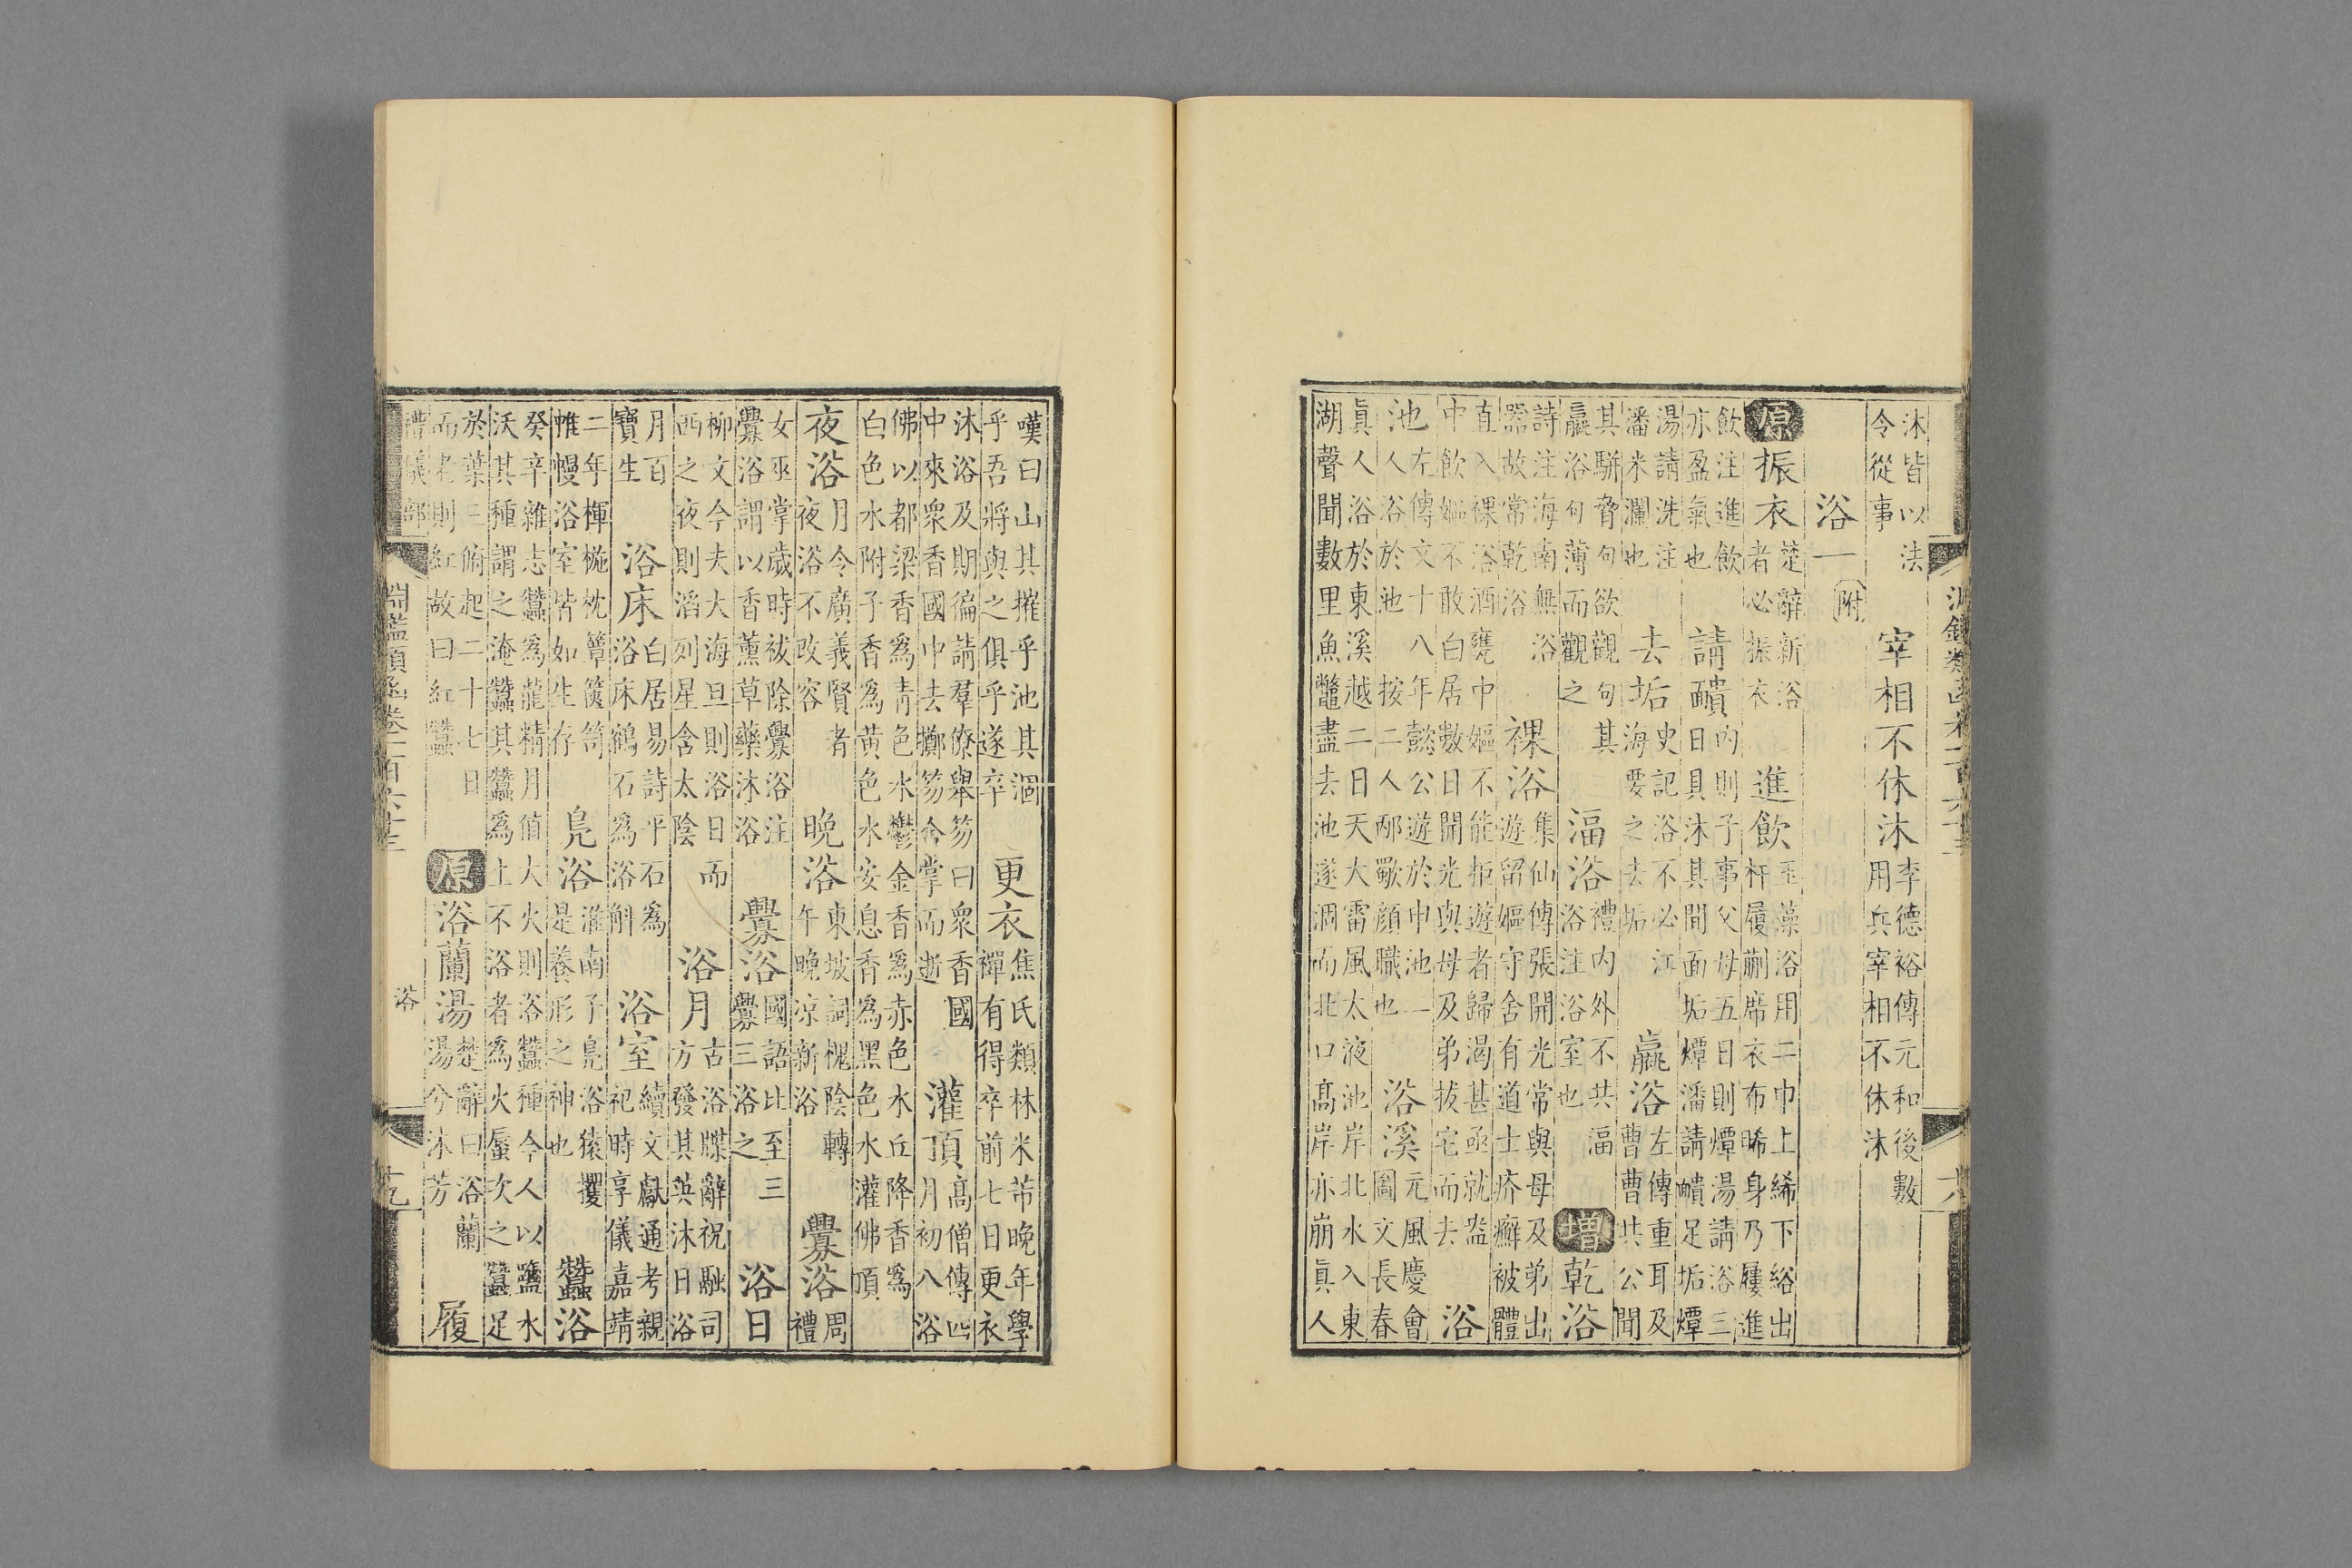 淵鑑類函卷一百六十三
沐皆以法
令從事
宰相不休沐
李德裕傳元和後數
用兵宰相不休沐
浴一 附
原 振衣
楚辭新浴
者必振衣
進飲
玉藻浴用二巾上絺下綌出
杅履蒯席衣布晞身乃屨進
飲注進飲
亦盈氣也
請靧
內則子事父母五日則燂湯請浴三
日具沐其間面垢燂潘請靧足垢燂
湯請洗注
潘米瀾也
去垢
史記浴不必江
海要之去垢
羸浴
左傳重耳及
曹曹共公聞
其駢脅句欲觀句其
羸浴句薄而觀之
湢浴
禮內外不共湢
浴注浴室也
增 乾浴
詩注海南無浴
器故常乾浴
裸浴
集仙傳張開光常與母及弟出
遊留嫗守舍有道士疥癬被體
直入裸浴酒甕中嫗不能拒遊者歸渴甚亟就盎
中飲嫗不敢白居數日開光與母及弟拔宅而去
浴
池
左傳文十八年懿公遊於申池一
人浴於池按二人邴歜顏職也
浴溪
元風慶會
圖文長春
眞人浴於東溪越二日天大雷風太液池岸北水入東
湖聲聞數里魚鼈盡去池遂涸而北口高岸亦崩眞人
嘆曰山其摧乎池其涸
乎吾將與之俱乎遂卒
更衣
焦氏類林米芾晚年學
禪有得卒前七日更衣
沐浴及期徧請羣僚舉笏曰衆香國
中來衆香國中去擲笏合掌而逝
灌頂
高僧傳四
月初八浴
佛以都梁香爲青色水鬱金香爲赤色水丘降香爲
白色水附子香爲黄色水安息香爲黑色水灌佛頂
夜浴
月令廣義賢者
夜浴不改容
晚浴
東坡詞槐陰轉
午晚凉新浴
釁浴
周
禮
女巫掌歲時祓除釁浴注
釁浴謂以香薰草藥沐浴
釁浴
國語比至三
釁三浴之
浴日
柳文今夫大海旦則浴日而
西之夜則滔列星含太陰
浴月
古浴牒辭祝融司
方發其英沐日浴
月百
寶生
浴床
白居易詩平石爲
浴床鶴石爲浴斛
浴室
續文獻通考親
祀時享儀嘉靖
二年楎椸枕簟篋笥
帷幔浴室皆如生存
鳧浴
淮南子鳧浴猿攫
是養形之神也
蠶浴
癸辛雜志蠶爲龍精月値大火則浴蠶種今人以鹽水
沃其種謂之淹蠶其蠶爲土不浴者爲火蜃次之蠶足
於葉三俯起二十七日
而老則紅故曰紅蠶
原 浴蘭湯
楚辭曰浴蘭
湯兮沐芳
履
禮儀部
淵鑑類函卷一百六十三
浴